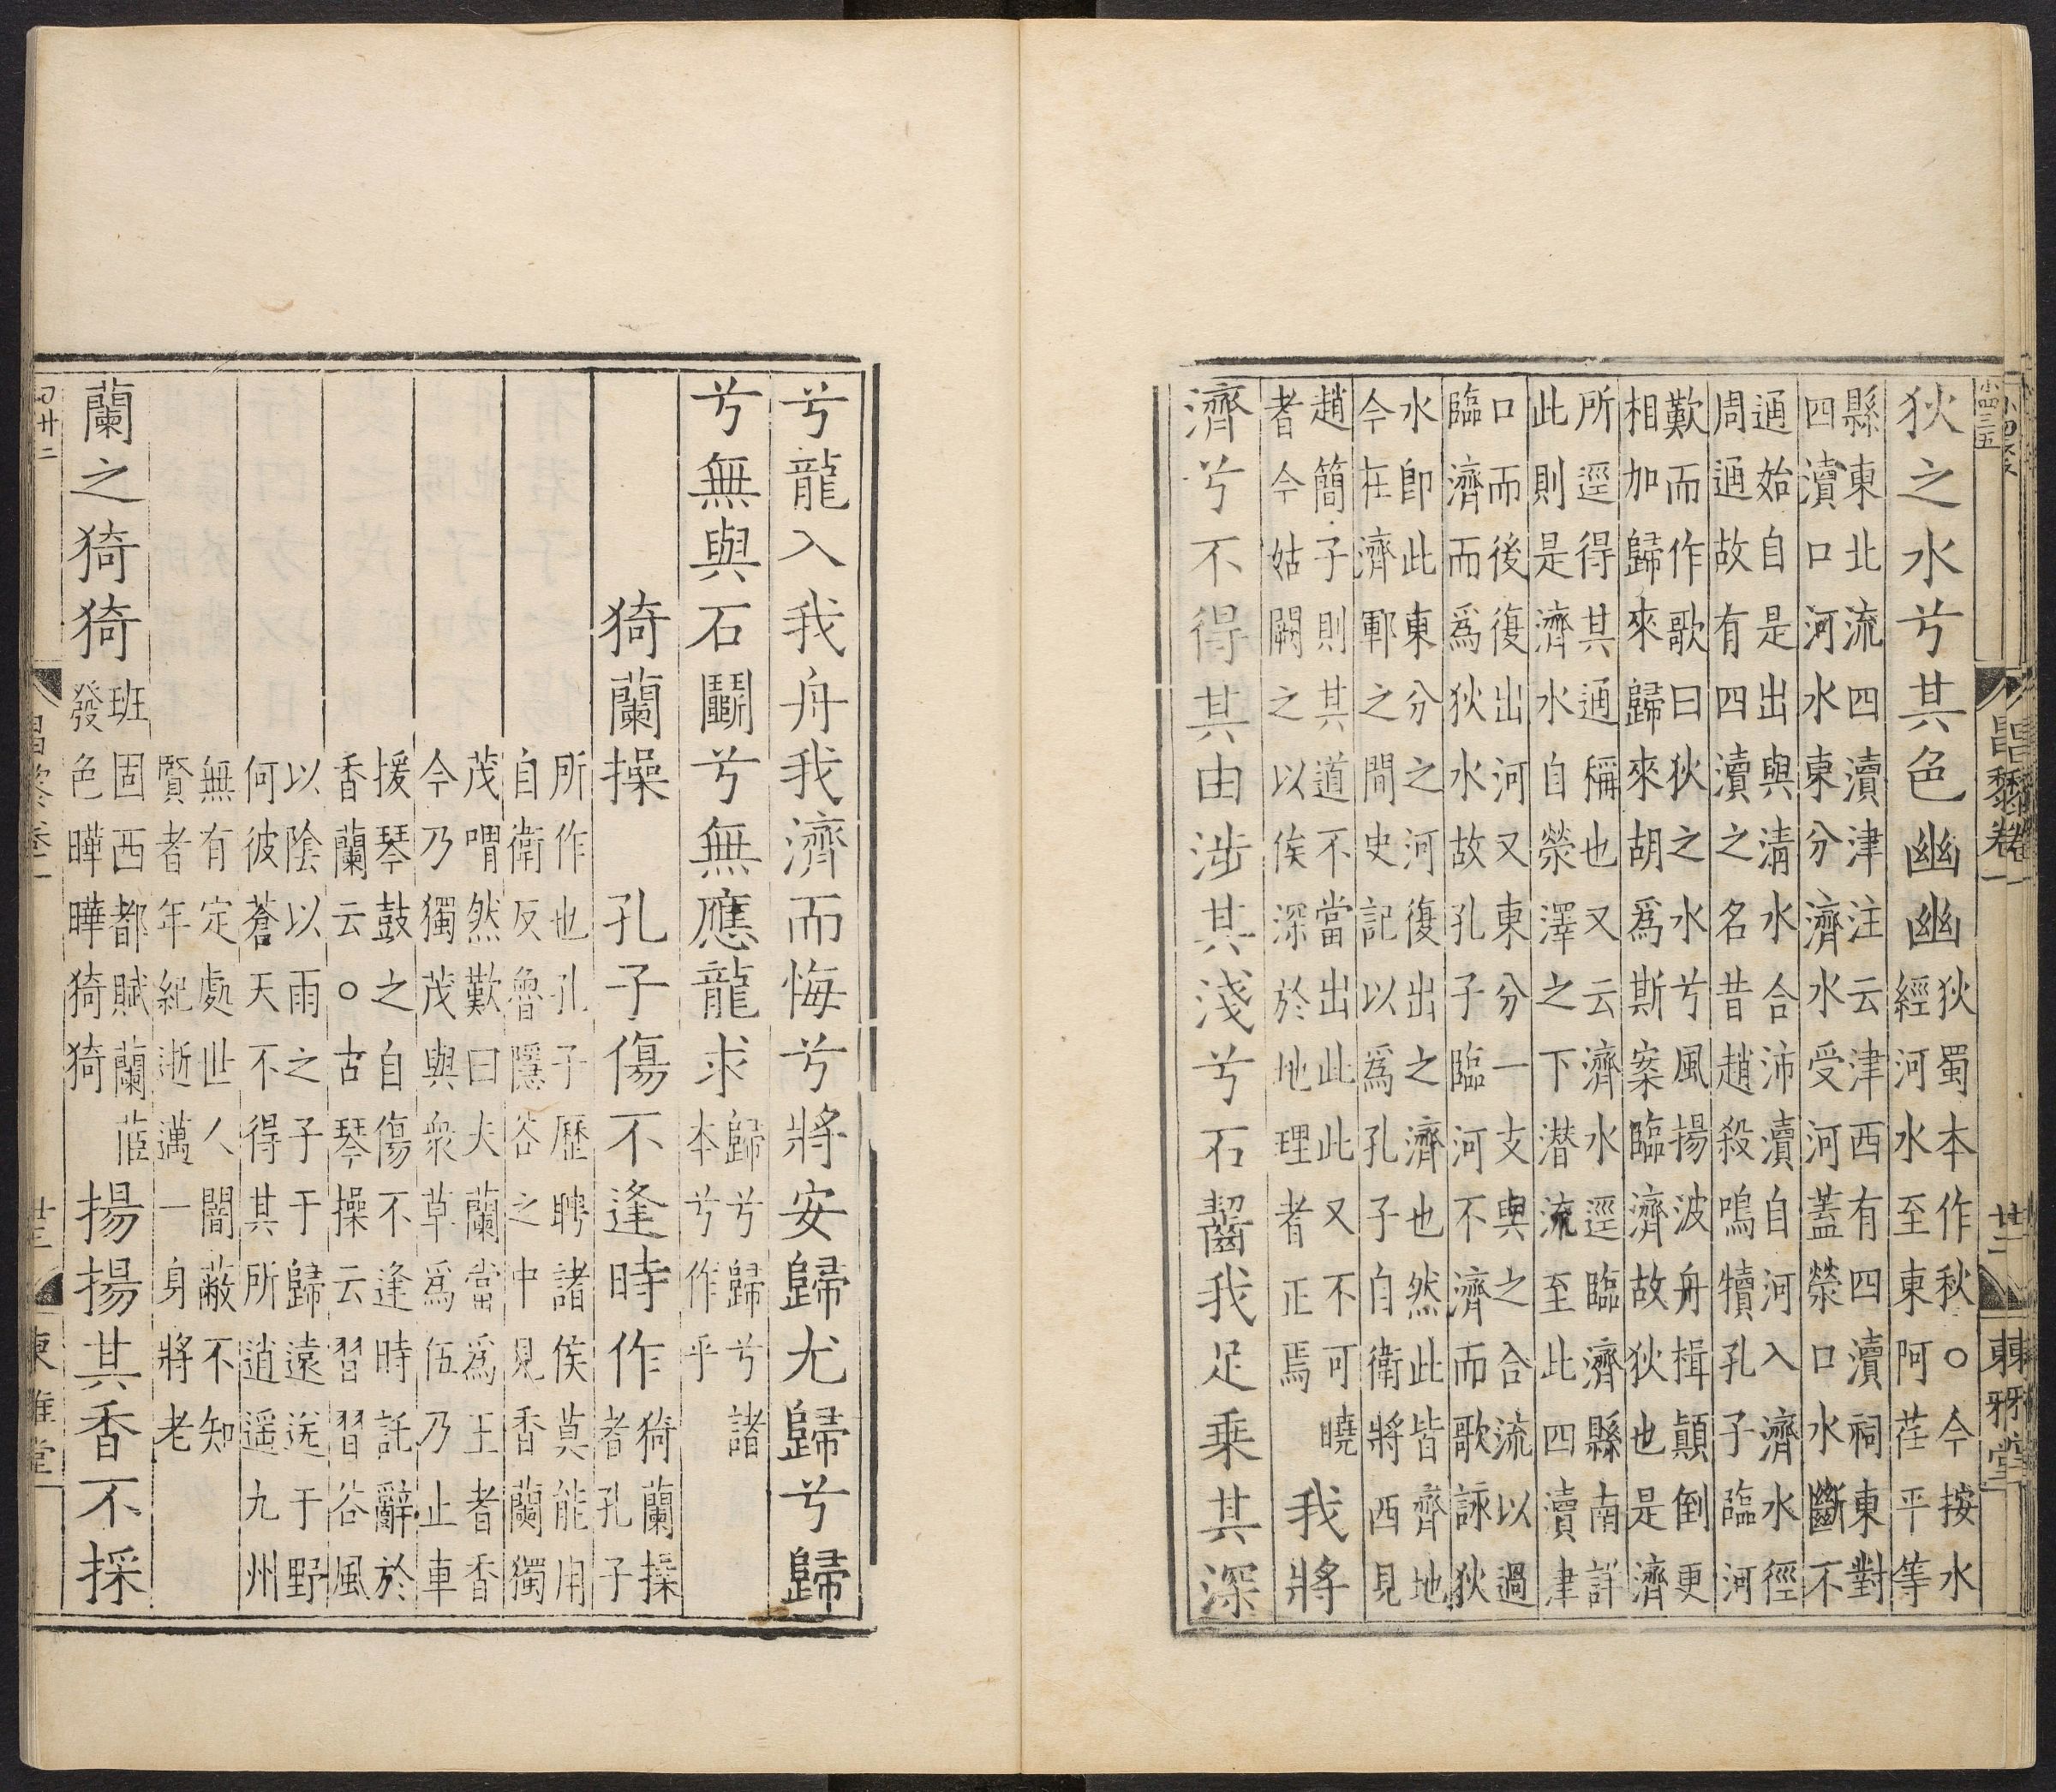 小四三五
昌黎卷一
廿二
東雅堂
狄之水兮其色幽幽
狄蜀本作秋○今按水
經河水至東阿茌平等
縣東北流四瀆津注云津西有四瀆祠東對
四瀆口河水東分濟水受河蓋滎口水斷不
通始自是出與淸水合沛瀆自河入濟水徑
周通故有四瀆之名昔趙殺鳴犢孔子臨河
歎而作歌曰狄之水兮風揚波舟楫顛倒更
相加歸來歸來胡爲斯案臨濟故狄也是濟
所逕得其通稱也又云濟水逕臨濟縣南詳
此則是濟水自滎澤之下潜流至此四瀆津
口而後復出河又東分一支與之合流以過
臨濟而爲狄水故孔子臨河不濟而歌詠狄
水卽此東分之河復出之濟也然此皆齊地
今在濟鄆之間史記以爲孔子自衛將西見
趙簡子則其道不當出此此又不可曉
者今姑闕之以俟深於地理者正焉
我將
濟兮不得其由涉其淺兮石齧我足乘其深
兮龍入我舟我濟而悔兮將安歸尤歸兮歸
兮無與石鬭兮無應龍求
歸兮歸兮諸
本兮作乎
猗蘭操 孔子傷不逢時作
猗蘭操
者孔子
所作也孔子歷聘諸侯莫能用
自衛反魯隱谷之中見香蘭獨
茂喟然歎曰夫蘭當爲王者香
今乃獨茂與衆草爲伍乃止車
援琴鼓之自傷不逢時託辭於
香蘭云○古琴操云習習谷風
以陰以雨之子于歸遠送于野
何彼蒼天不得其所逍遥九州
無有定處世人闇蔽不知
賢者年紀逝邁一身將老
蘭之猗猗
班固西都賦蘭茝
發色曄曄猗猗
揚揚其香不採
昌黎卷一
廿三
東雅堂